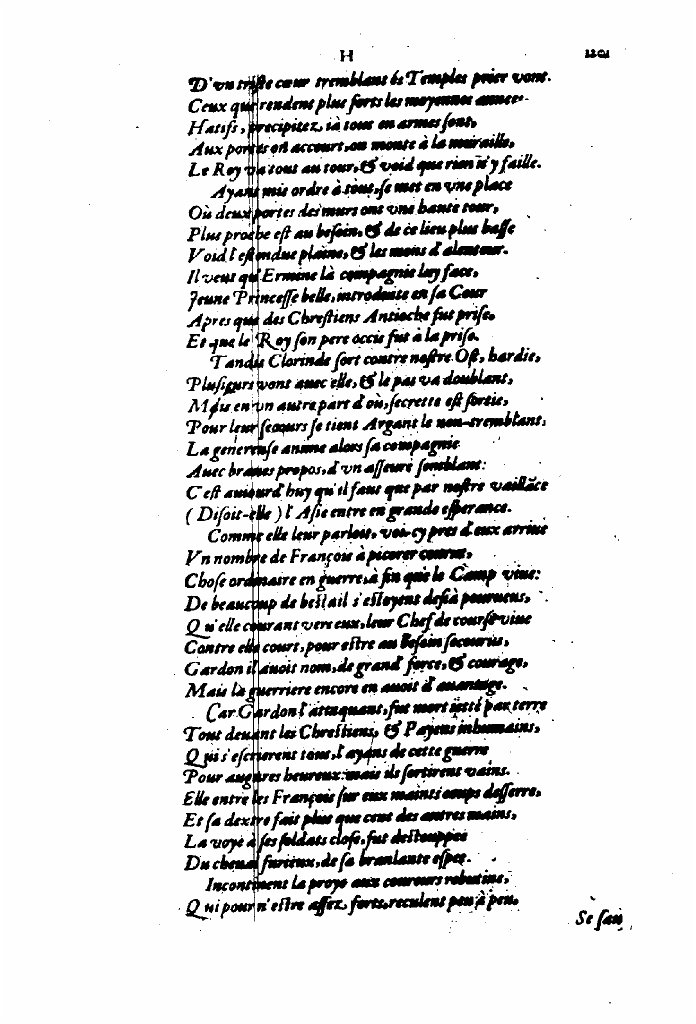 H 1201
D'vn triste cœur tremblant és Temples prier vont.
Ceux que rendent plus forts les moyennes annees
Hatifs, precipitez, ià tous en armes sont,
Aux portes on accourt, on monte à la muraille,
Le Roy va tout au tour, & void que rien n'y faille.
Ayant mis ordre à tout, se met en vne place
Où deux portes des murs ont vne haute tour,
Plus proche est au besoin, & de ce lieu plus basse
Void l'estendue plaine, & les monts d'alentour.
Il veut qu'Ermine là compagnie luy face,
Jeune Princesse belle, introduite en sa Cour
Apres que des Chrestiens Antioche fut prise,
Et que le Roy son pere occis fut à la prise.
Tandis Clorinde sort contre nostre Ost, hardie,
Plusieurs vont auec elle, & le pas va doublant,
Mais en vn autre part d'où, secrette est sortie,
Pour leur secours se tient Argant le non-tremblant:
La genereuse anime alors sa compagnie
Auec braues propos, d'vn asseuré semblant:
C'est auiourd'huy qu'il faut que par nostre vaillāce
(Disoit-elle) l'Asie entre en grande esperance.
Comme elle leur parloit, voi-cy pres d'eux arriue
Vn nombre de François à picorer courut,
Chose ordinaire en guerre, à fin que le Camp viue:
De beaucoup de bestail s'estoyent desià pourueus,
Qu'elle courant vers eux, leur Chef de course viue
Contre elle court, pour estre au besoin secourus,
Gardon il auoit nom, de grand' force, & courage,
Mais la guerriere encore en auoit d'auantage.
Car Gardon l'attaquant, fut mort ietté par terre
Tout deuant les Chrestiens, & Payens inhumains,
Qui s'escrierent tous, l'ayans de cette guerre
Pour augures heureux: mais ils sortirent vains.
Elle entre les François sur eux maints coups desserre,
Et sa dextre fait plus que cent des autres mains,
La voye à ses soldats close, fut destouppee
Du cheual furieux, de sa branlante espee.
Incontinent la proye aux coureurs robutine,
Qui pour n'estre assez forts, reculent peu à peu,
Se sau